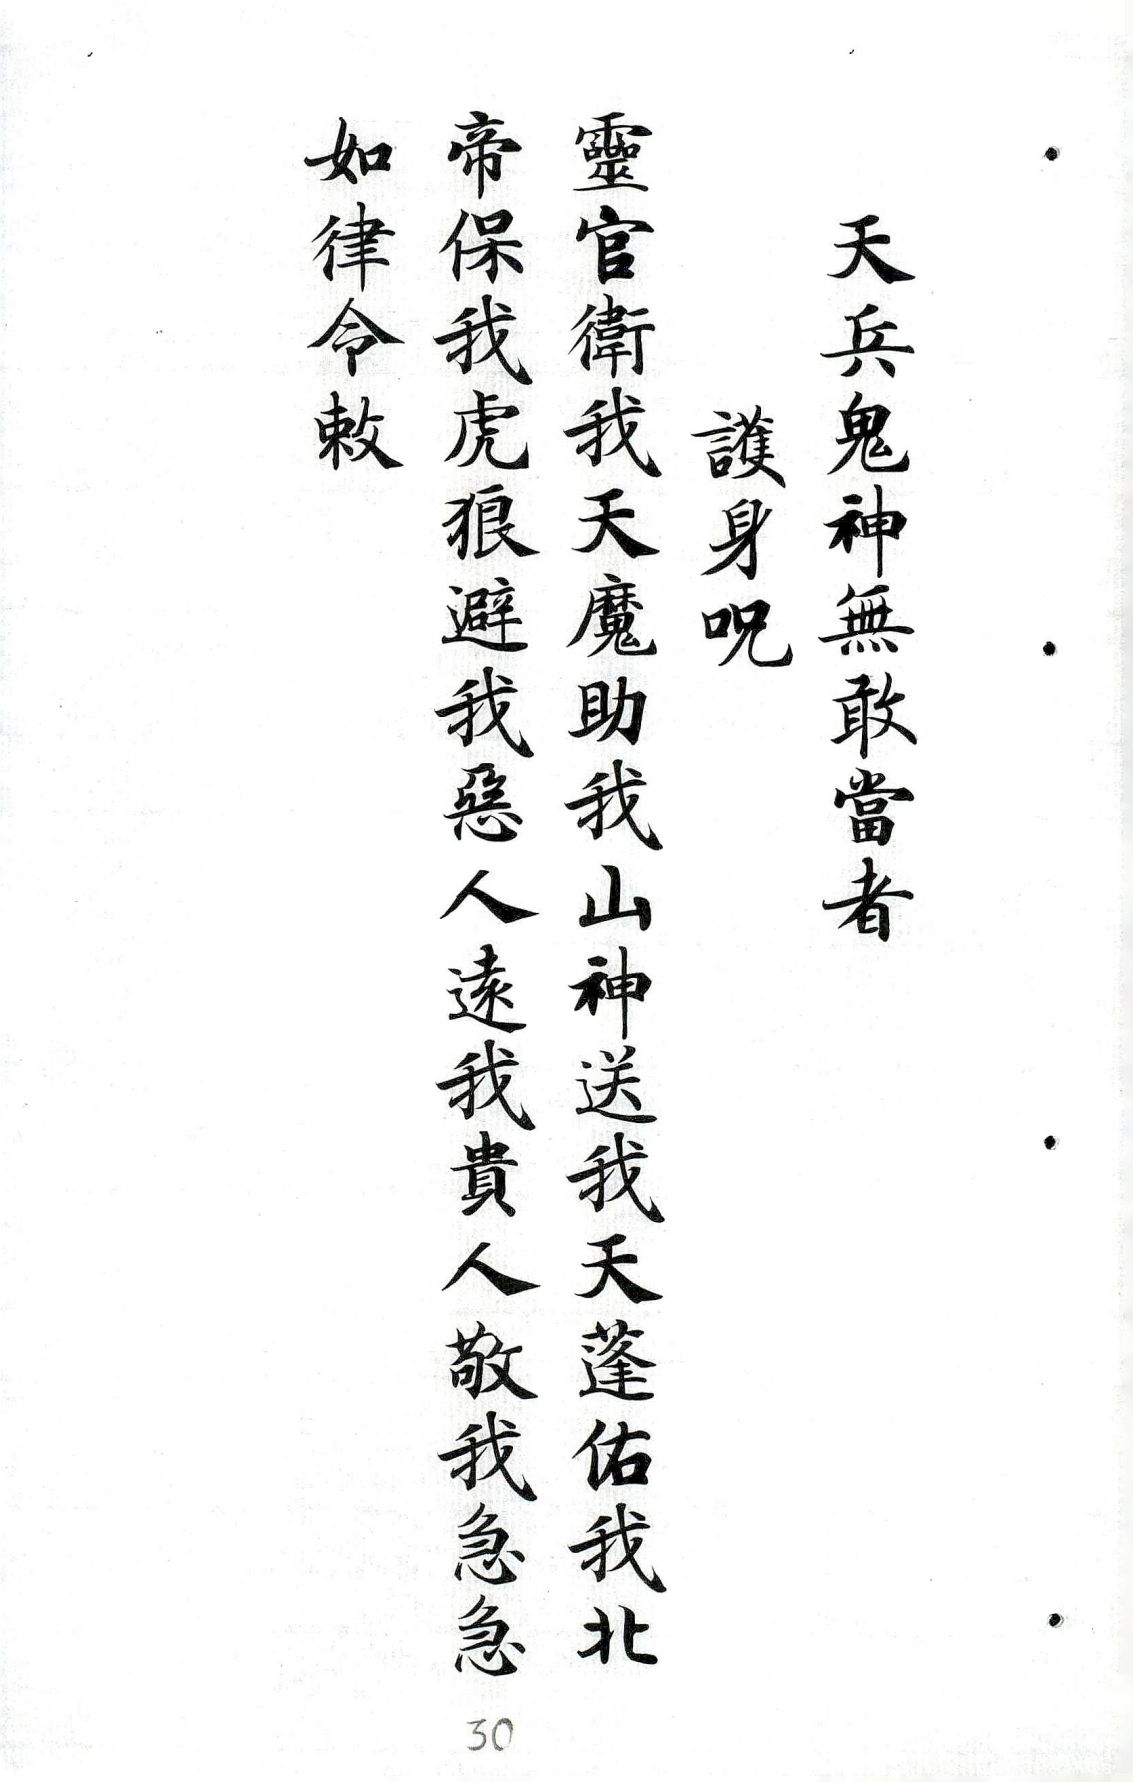 天兵鬼神無敢當者
護身呪
靈官衛我天魔助我山神送我天蓬佑我北
帝保我虎狼避我惡人遠我貴人敬我急急
如律令敕
30